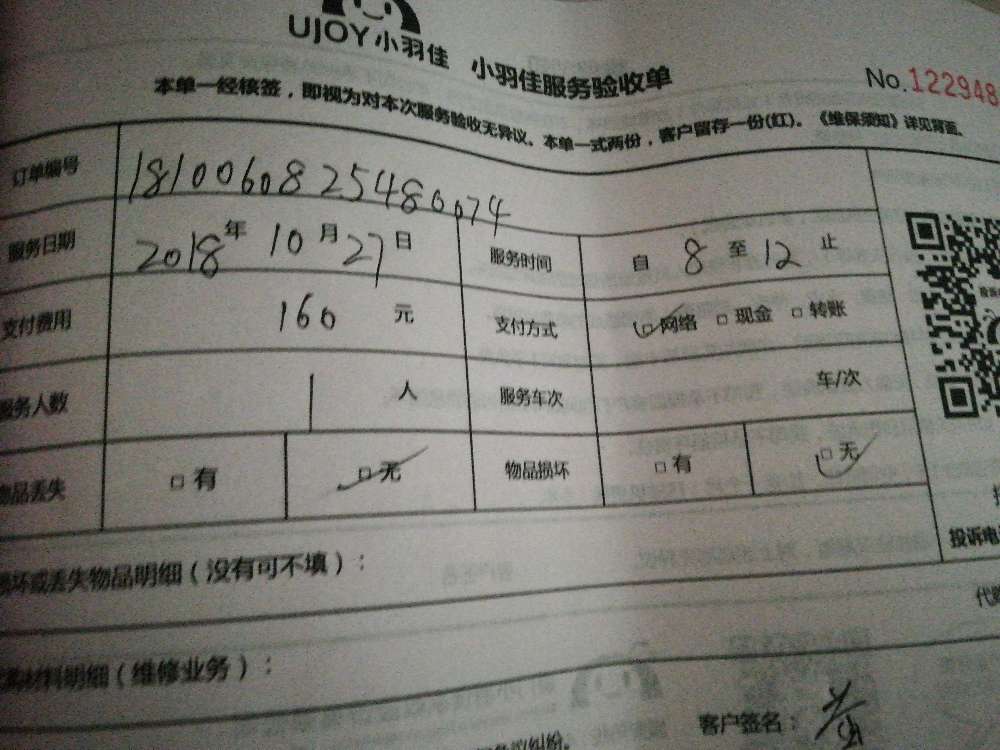 UJOY小羽佳 小羽佳服务验收单
No.122948
本单一经核签，即视为对本次服务验收无异议。本单一式两份，客户留存一份(红)。《维保须知》详见背面。
订单编号 1810060825480074
服务日期 2018年10月27日 服务时间 自 8 至 12 止
支付费用 160 元 支付方式 □网络 □现金 □转账
服务人数 1 人 服务车次 车/次
物品丢失 □有 □无 物品损坏 □有 □无
投诉电
损坏或丢失物品明细（没有可不填）：
材料明细（维修业务）：
客户签名：
议纠纷。